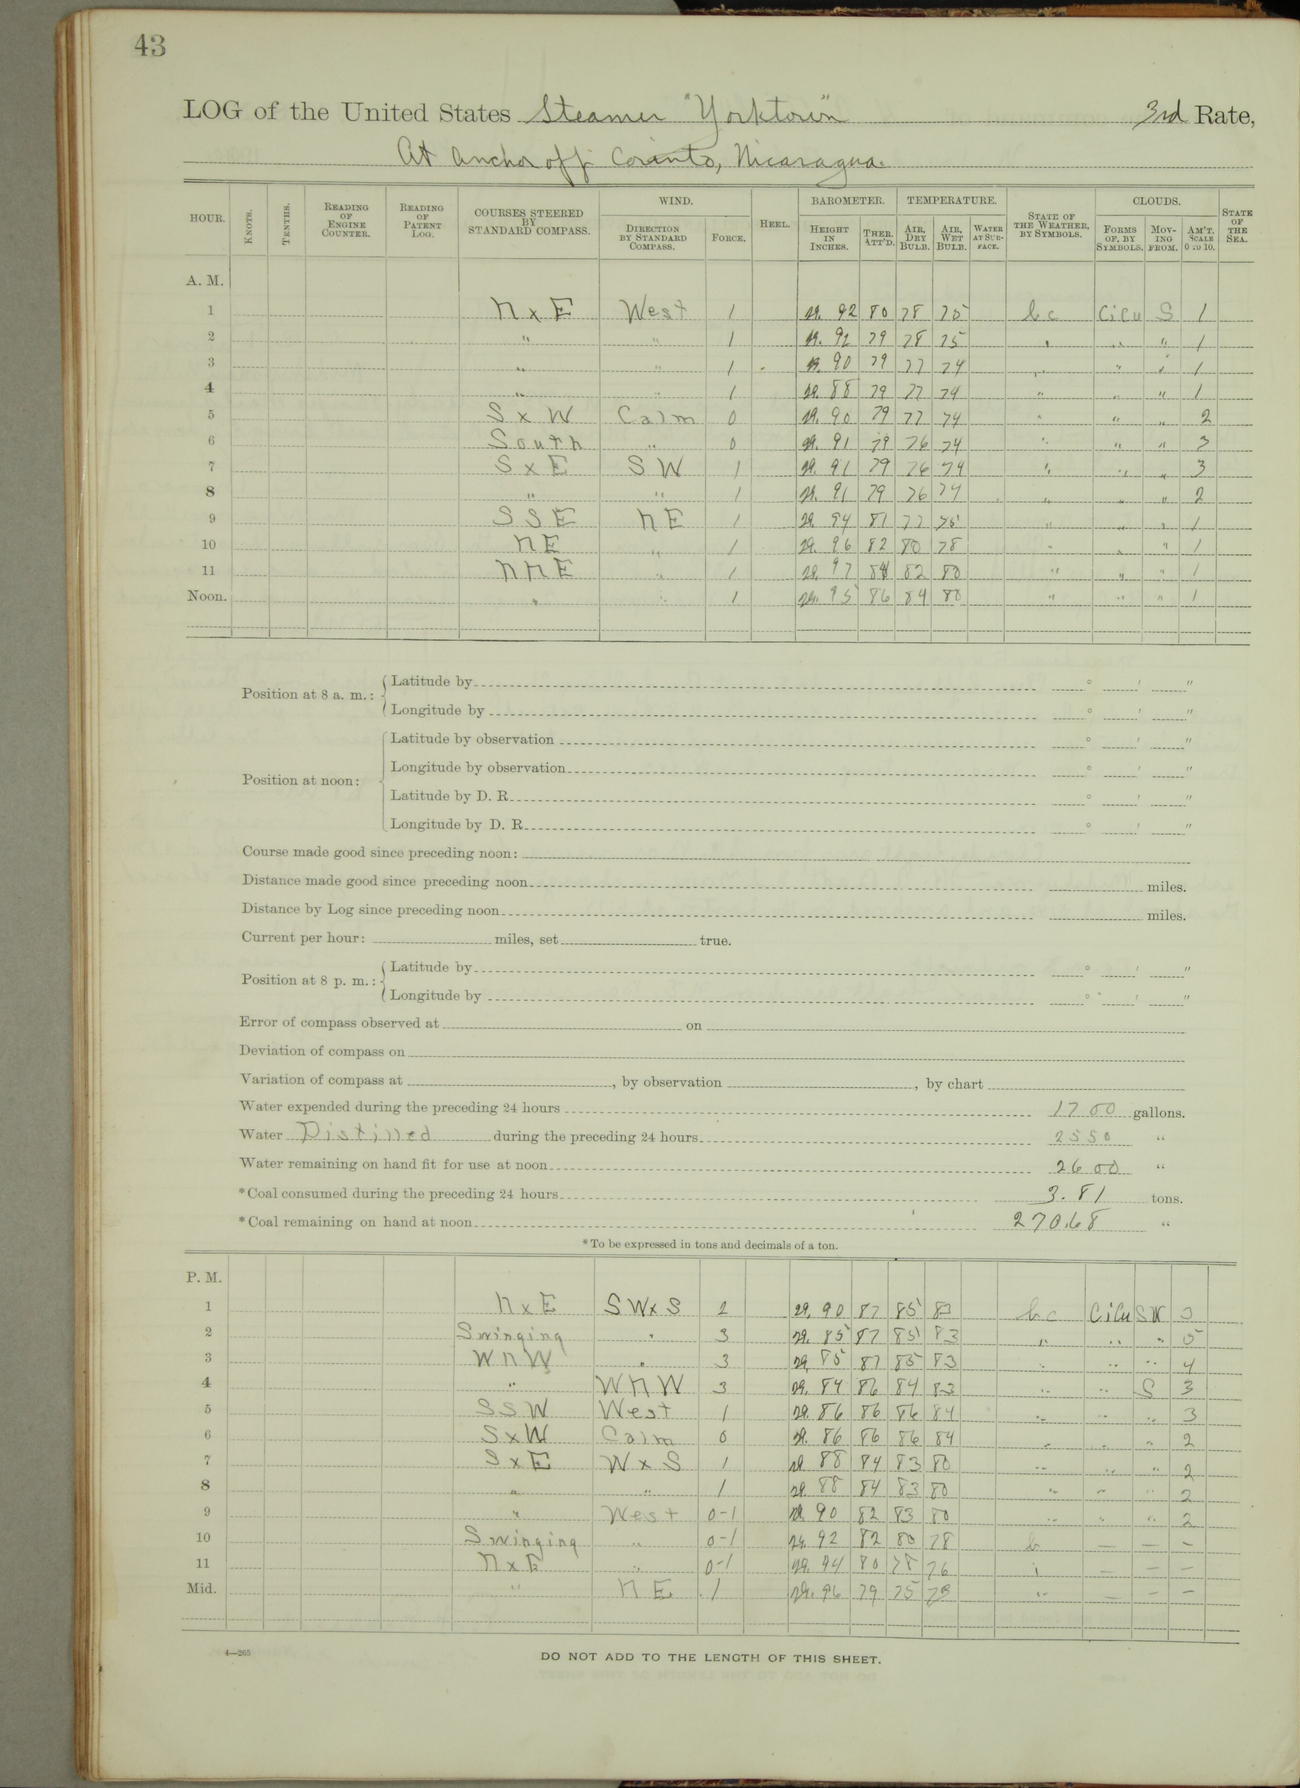 43
LOG of the United States Steamer "Yorktown" 3rd Rate,
At anchor off Corinto, Nicaragua.
HOUR. KNOTS. TENTHS. READING OF ENGINE COUNTER. READING OF PATENT LOG. COURSES STEERED BY STANDARD COMPASS. WIND. DIRECTION BY STANDARD COMPASS. FORCE. HEEL. BAROMETER. HEIGHT IN INCHES. THER. ATT'D. TEMPERATURE. AIR, DRY BULB. AIR, WET BULB. WATER AT SURFACE. STATE OF THE WEATHER, BY SYMBOLS. CLOUDS. FORMS OF, BY SYMBOLS. MOVING FROM. AM'T. SCALE 0 TO 10. STATE OF THE SEA.
A. M.
1 N x E West 1 29.92 80 78 75 bc CiCu S 1
2 " " 1 29.92 79 78 75 " " " 1
3 " " 1 29.90 79 77 74 " " " 1
4 " " 1 29.88 79 77 74 " " " 1
5 S x W Calm 0 29.90 79 77 74 " " " 2
6 South " 0 29.91 79 76 74 " " " 3
7 S x E SW 1 29.91 79 76 74 " " " 3
8 " " 1 29.91 79 76 74 " " " 2
9 SSE NE 1 29.94 81 77 75 " " " 1
10 NE " 1 29.96 82 80 78 " " " 1
11 NNE " 1 29.97 84 82 80 " " " 1
Noon. " " 1 29.95 86 84 80 " " " 1
Position at 8 a. m.: Latitude by ° ' "
Longitude by ° ' "
Position at noon: Latitude by observation ° ' "
Longitude by observation ° ' "
Latitude by D. R. ° ' "
Longitude by D. R. ° ' "
Course made good since preceding noon:
Distance made good since preceding noon miles.
Distance by Log since preceding noon miles.
Current per hour: miles, set true.
Position at 8 p. m.: Latitude by ° ' "
Longitude by ° ' "
Error of compass observed at on
Deviation of compass on
Variation of compass at , by observation , by chart
Water expended during the preceding 24 hours 1700 gallons.
Water Distilled during the preceding 24 hours 2550 "
Water remaining on hand fit for use at noon 2600 "
*Coal consumed during the preceding 24 hours 3.81 tons.
*Coal remaining on hand at noon 270.68 "
*To be expressed in tons and decimals of a ton.
P. M.
1 N x E SW x S 2 29.90 87 85 83 bc CiCu SW
2 Swinging " 3 29.85 87 85 83 " " " 5
3 WNW " 3 29.85 87 85 83 " " " 4
4 " WNW 3 29.84 86 84 83 " " S 3
5 SSW West 1 29.86 86 86 84 " " " 3
6 S x W Calm 0 29.86 86 86 84 " " " 2
7 S x E W x S 1 29.88 84 83 80 " " " 2
8 " " 1 29.88 84 83 80 " " " 2
9 " West 0-1 29.90 82 83 80 " " " 2
10 Swinging " 0-1 29.92 82 80 78 b — — —
11 N x E " 0-1 29.94 80 78 76 " — — —
Mid. " NE 1 29.96 79 75 " — — —
4—265
DO NOT ADD TO THE LENGTH OF THIS SHEET.